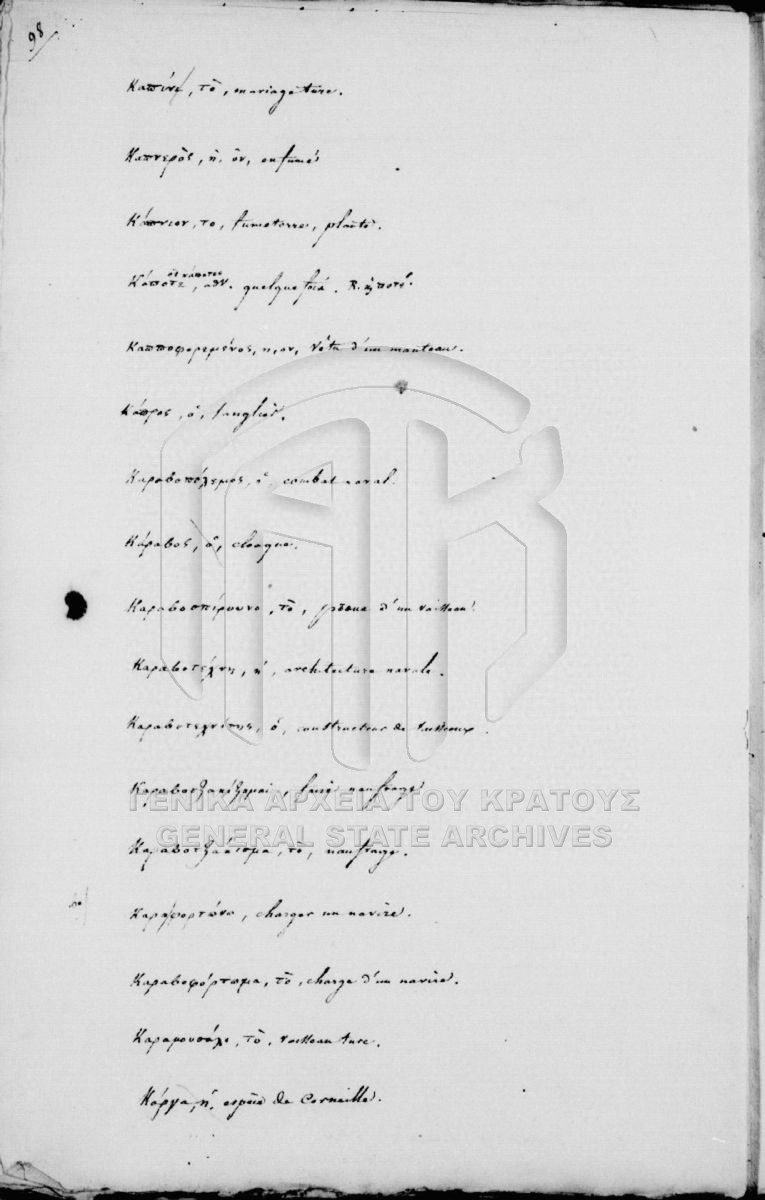 98
Καπίνι, τὸ, mariage turc.
Καπνερὸς, ἡ, ὸν, enfumé
Κάπνιον, το, fumeterre, plante.
Κάποτε, ἢ κάποτες, quelque fois. R.
Καπποφορεμένος, η, ον, Vêtu d'un manteau.
Κάπρος, ὁ, sanglier.
Καραβοπόλεμος, ὁ, combat naval.
Κάραβος, ὁ, cloaque.
Καραβοσπίρουνο, τὸ, proue d'un vaisseau.
Καραβοτέχνη, ἡ, architecture navale.
Καραβοτεχνίτης, ὁ, constructeur de vaisseaux.
Καραβοτζακίζομαι, faire naufrage
Καραβοτζάκισμα, τὸ, naufrage.
Καραφορτώνω, charger un navire.
Καραβοφόρτωμα, τὸ, charge d'un navire.
Καραμουσάλι, τὸ, vaisseau turc.
Κάργα, ἡ, espèce de Corneille.
ΓΕΝΙΚΑ ΑΡΧΕΙΑ ΤΟΥ ΚΡΑΤΟΥΣ
GENERAL STATE ARCHIVES